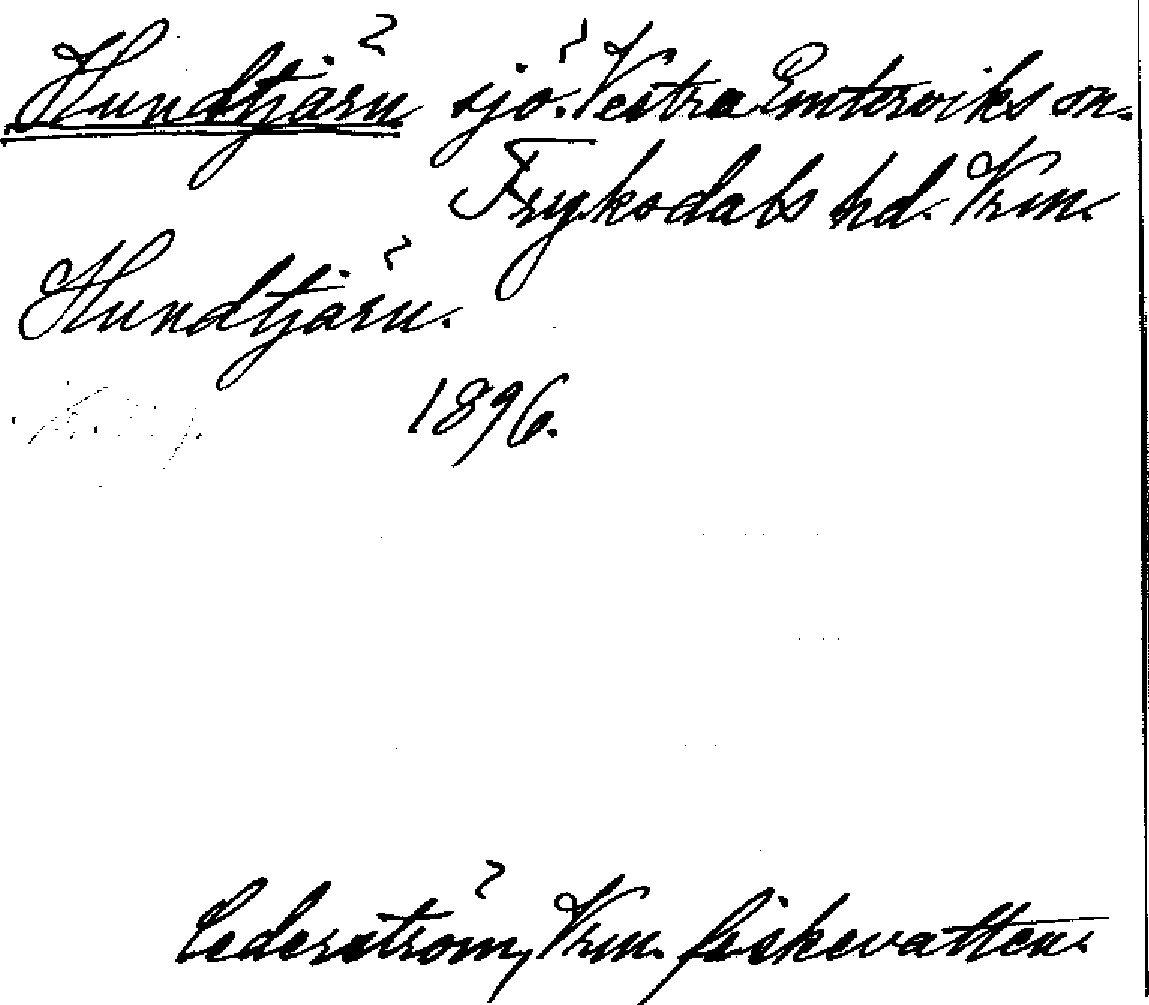 Hundtjärn sjö. Vestra Emterviks sn.
Fryksdals hd. Vrm.
Hundtjärn.
1896.
Cederström, Vrm. fiskevatten.